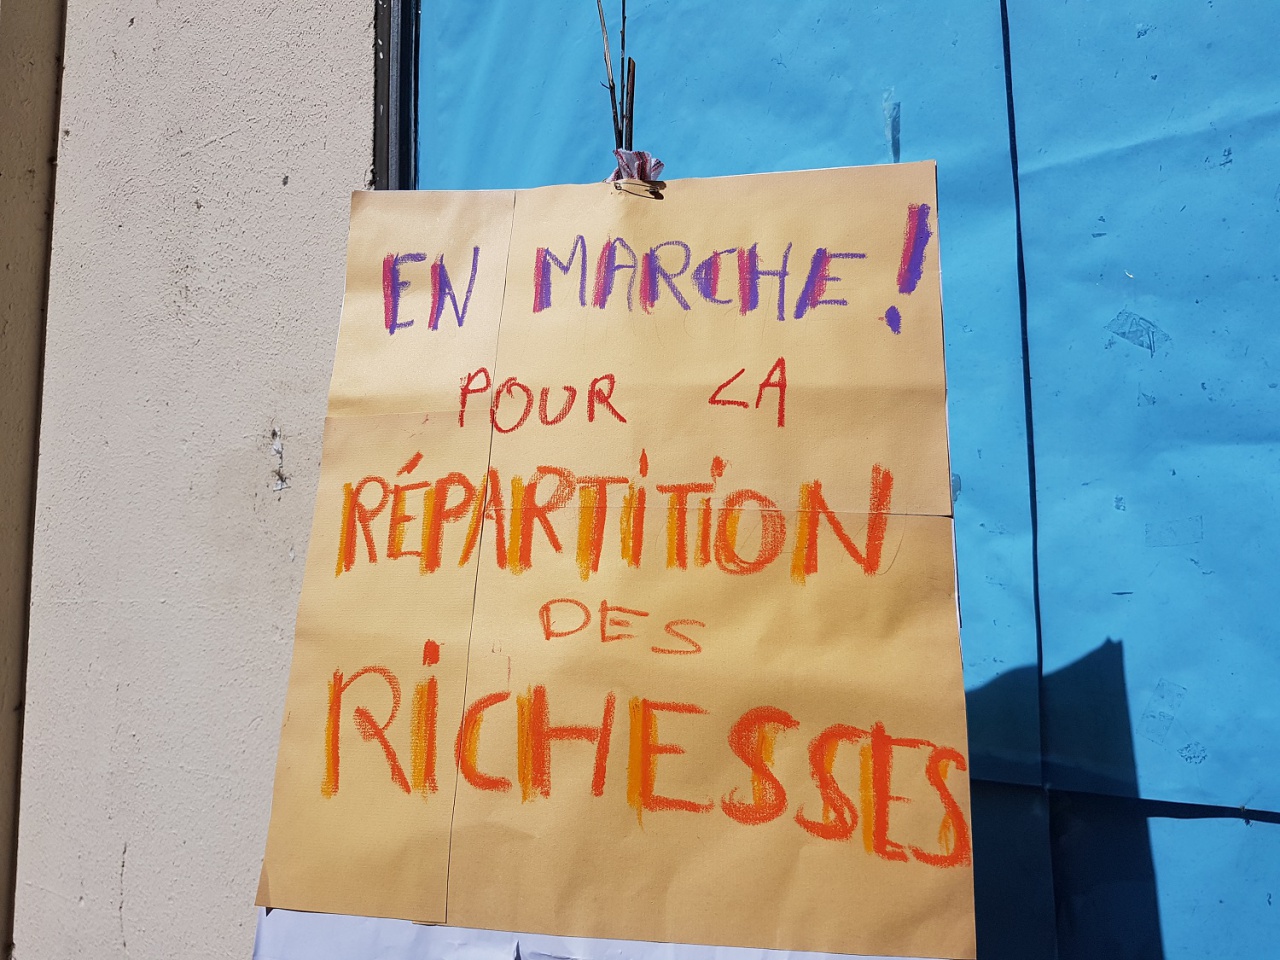 EN MARCHE !
POUR LA
RÉPARTITION
DES
RICHESSES